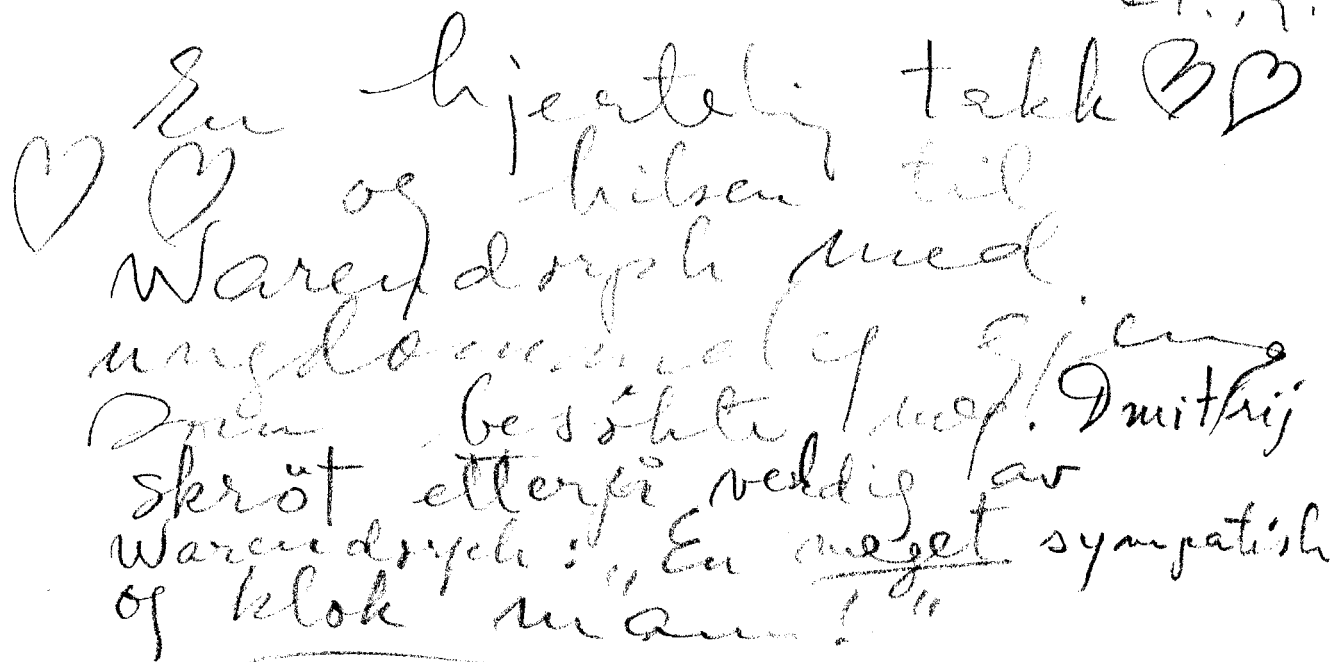 En hjertelig takk
og hilsen til
Warendorph med
ungdommelig
som besökte meg. Dmitrij
skröt etterpå veldig av
Warendorph: „En meget sympatisk
og klok mann!"